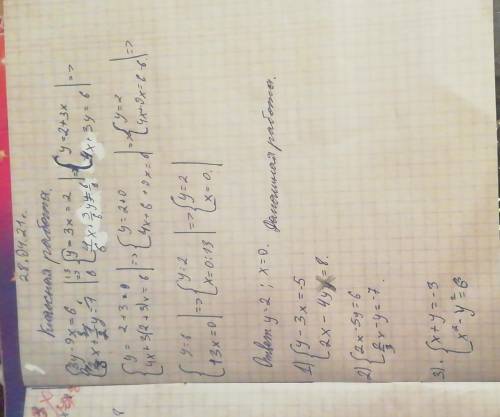 28.04.21г.
Классная работа.
{3y-9x=6 |:3 => {y-3x=2 => {y=2+3x =>
{4x+3y=6
{y=2+3·0 => {y=2+0 => {y=2
{4x+3(2+3)x=6 {4x+6+9x=6 {4x+9x=6-6 =>
{y=2 => {y=2
{13x=0 {x=0:13 {x=0.
Ответ y=2; x=0.
Домашняя работа.
1) {y-3x=-5
{2x-4y=8.
2) {2x-5y=6
{2/3x-y=-7.
3). {x+y=-3
{x²-y²=6